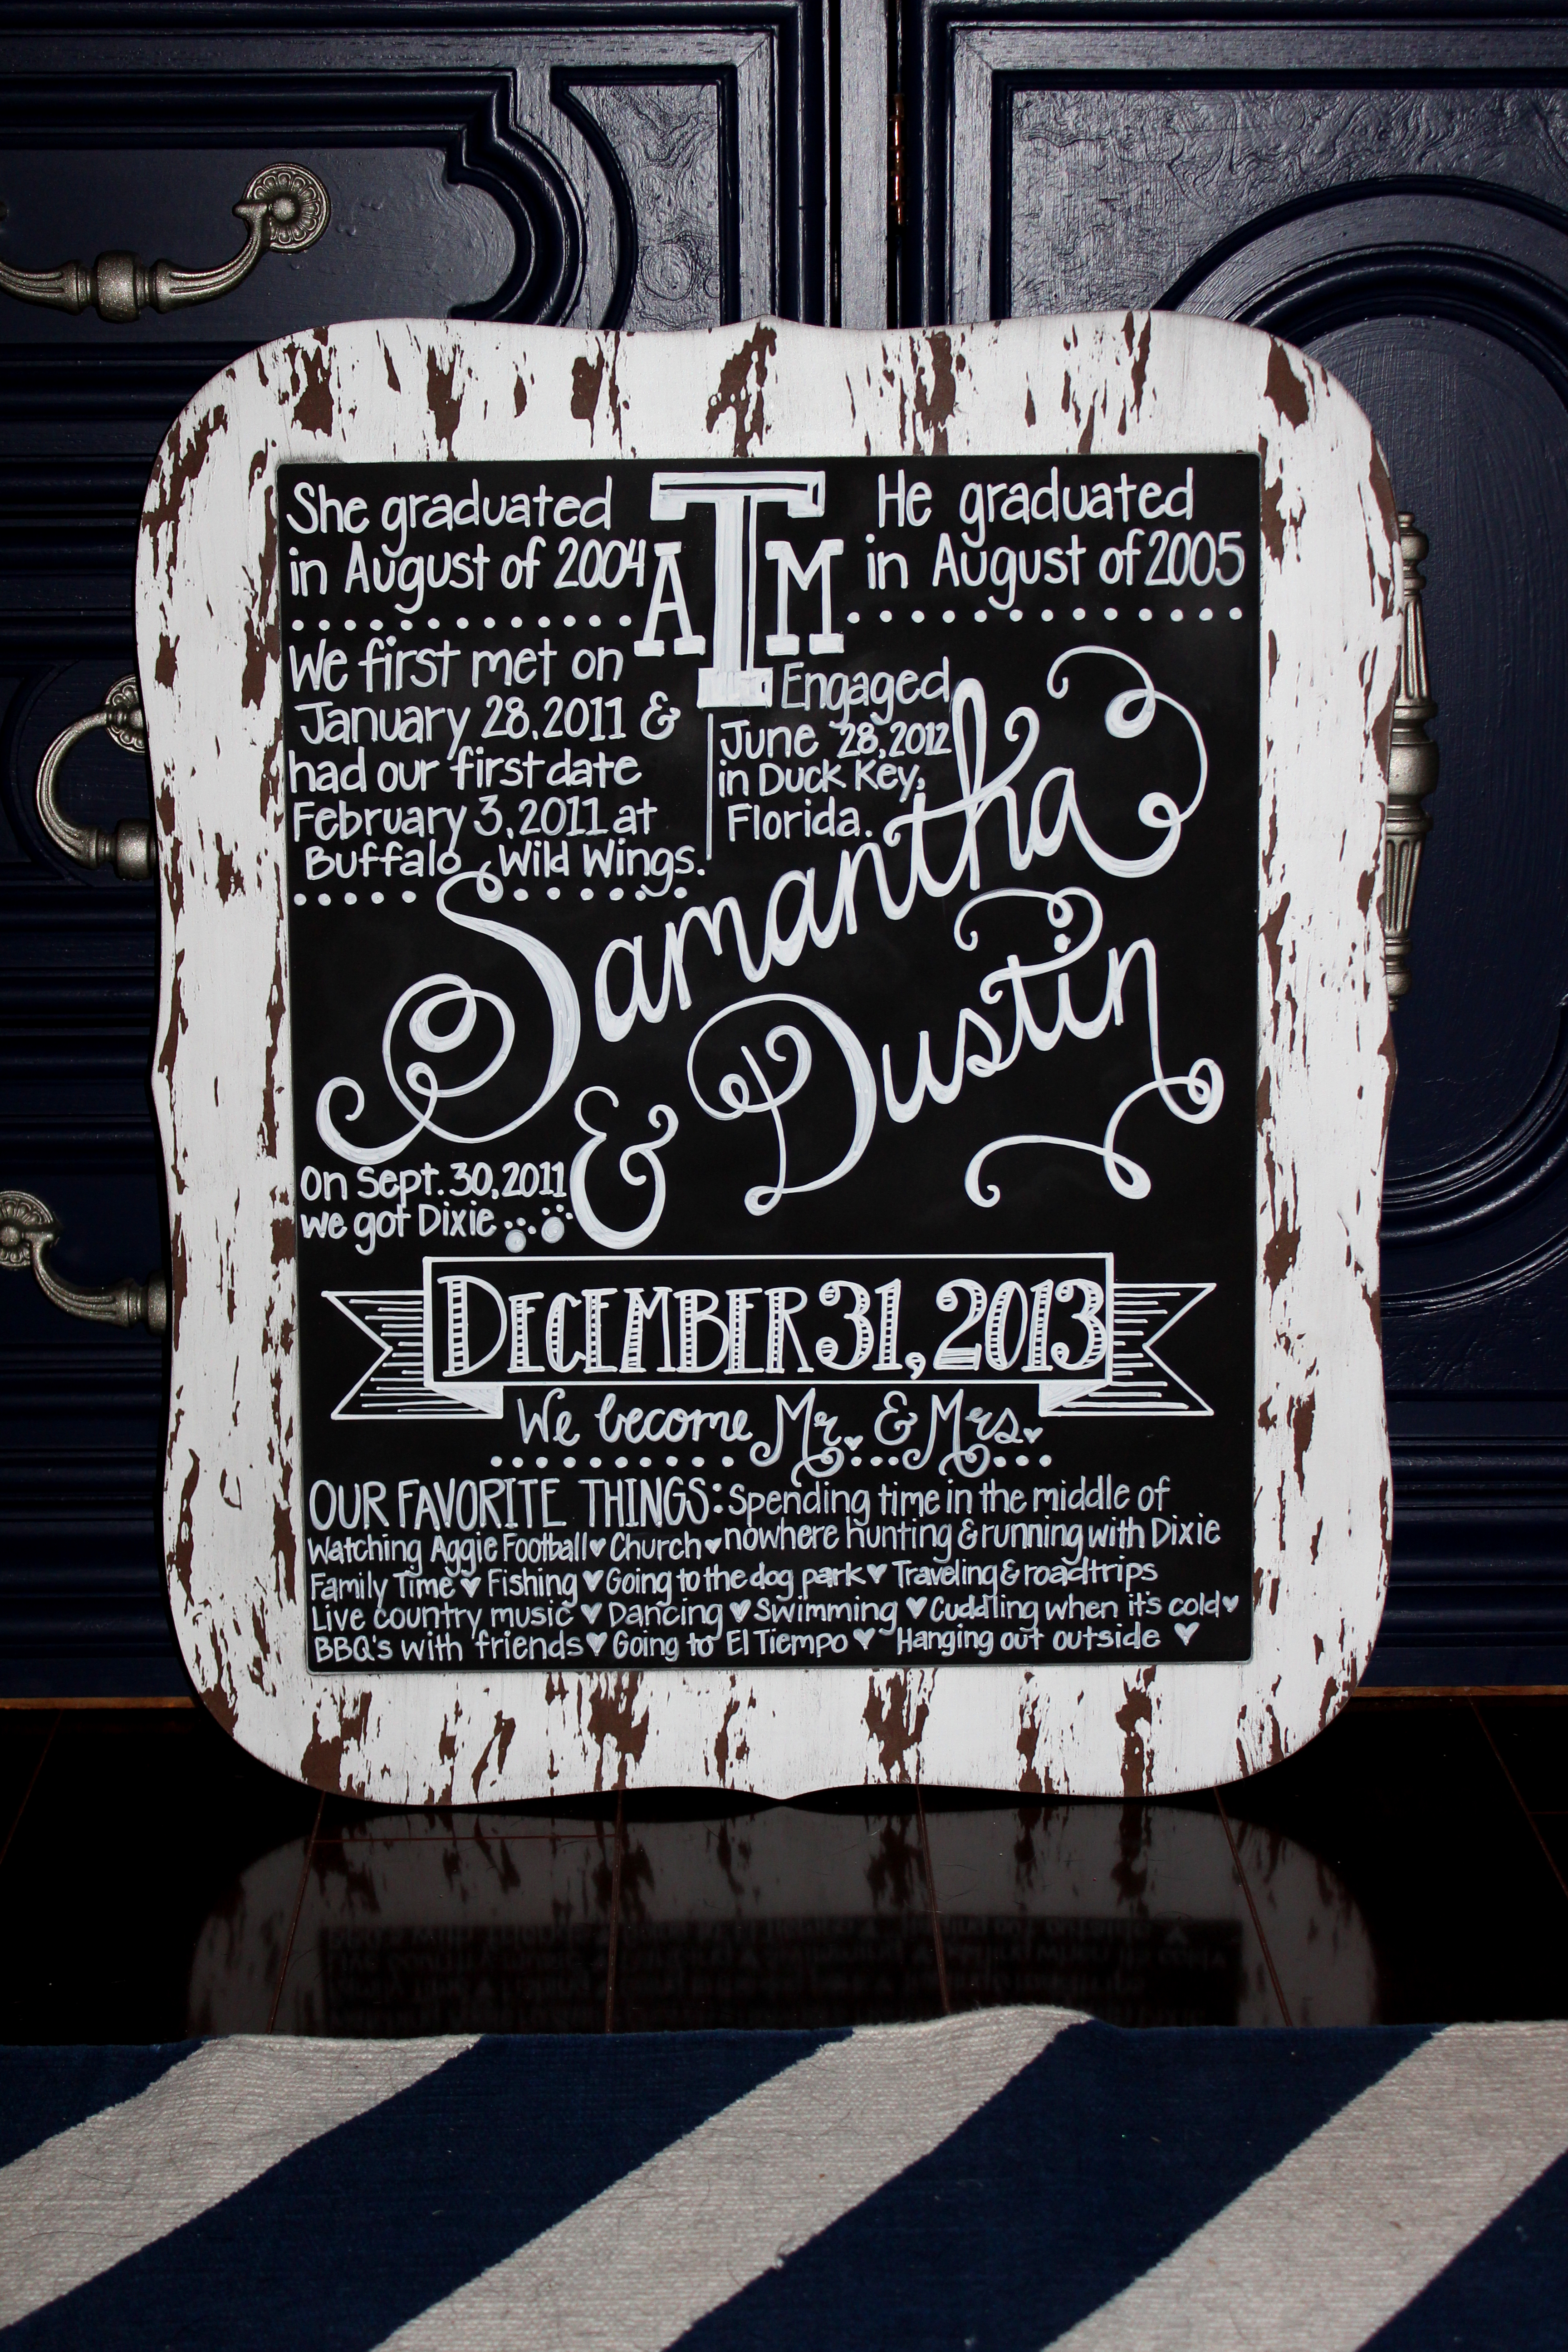 She graduated
in August of 2004
ATM
He graduated
in August of 2005
We first met on
January 28, 2011 &
had our first date
February 3, 2011 at
Buffalo Wild Wings.
Engaged
June 28, 2012
in Duck Key,
Florida.
Samantha
& Dustin
On Sept. 30, 2011
we got Dixie
DECEMBER 31, 2013
We become Mr. & Mrs.
OUR FAVORITE THINGS: Spending time in the middle of
Watching Aggie Football ♥ Church ♥ nowhere hunting & running with Dixie
Family Time ♥ Fishing ♥ Going to the dog park ♥ Traveling & roadtrips
Live country music ♥ Dancing ♥ Swimming ♥ Cuddling when it's cold ♥
BBQ's with friends ♥ Going to El Tiempo ♥ Hanging out outside ♥